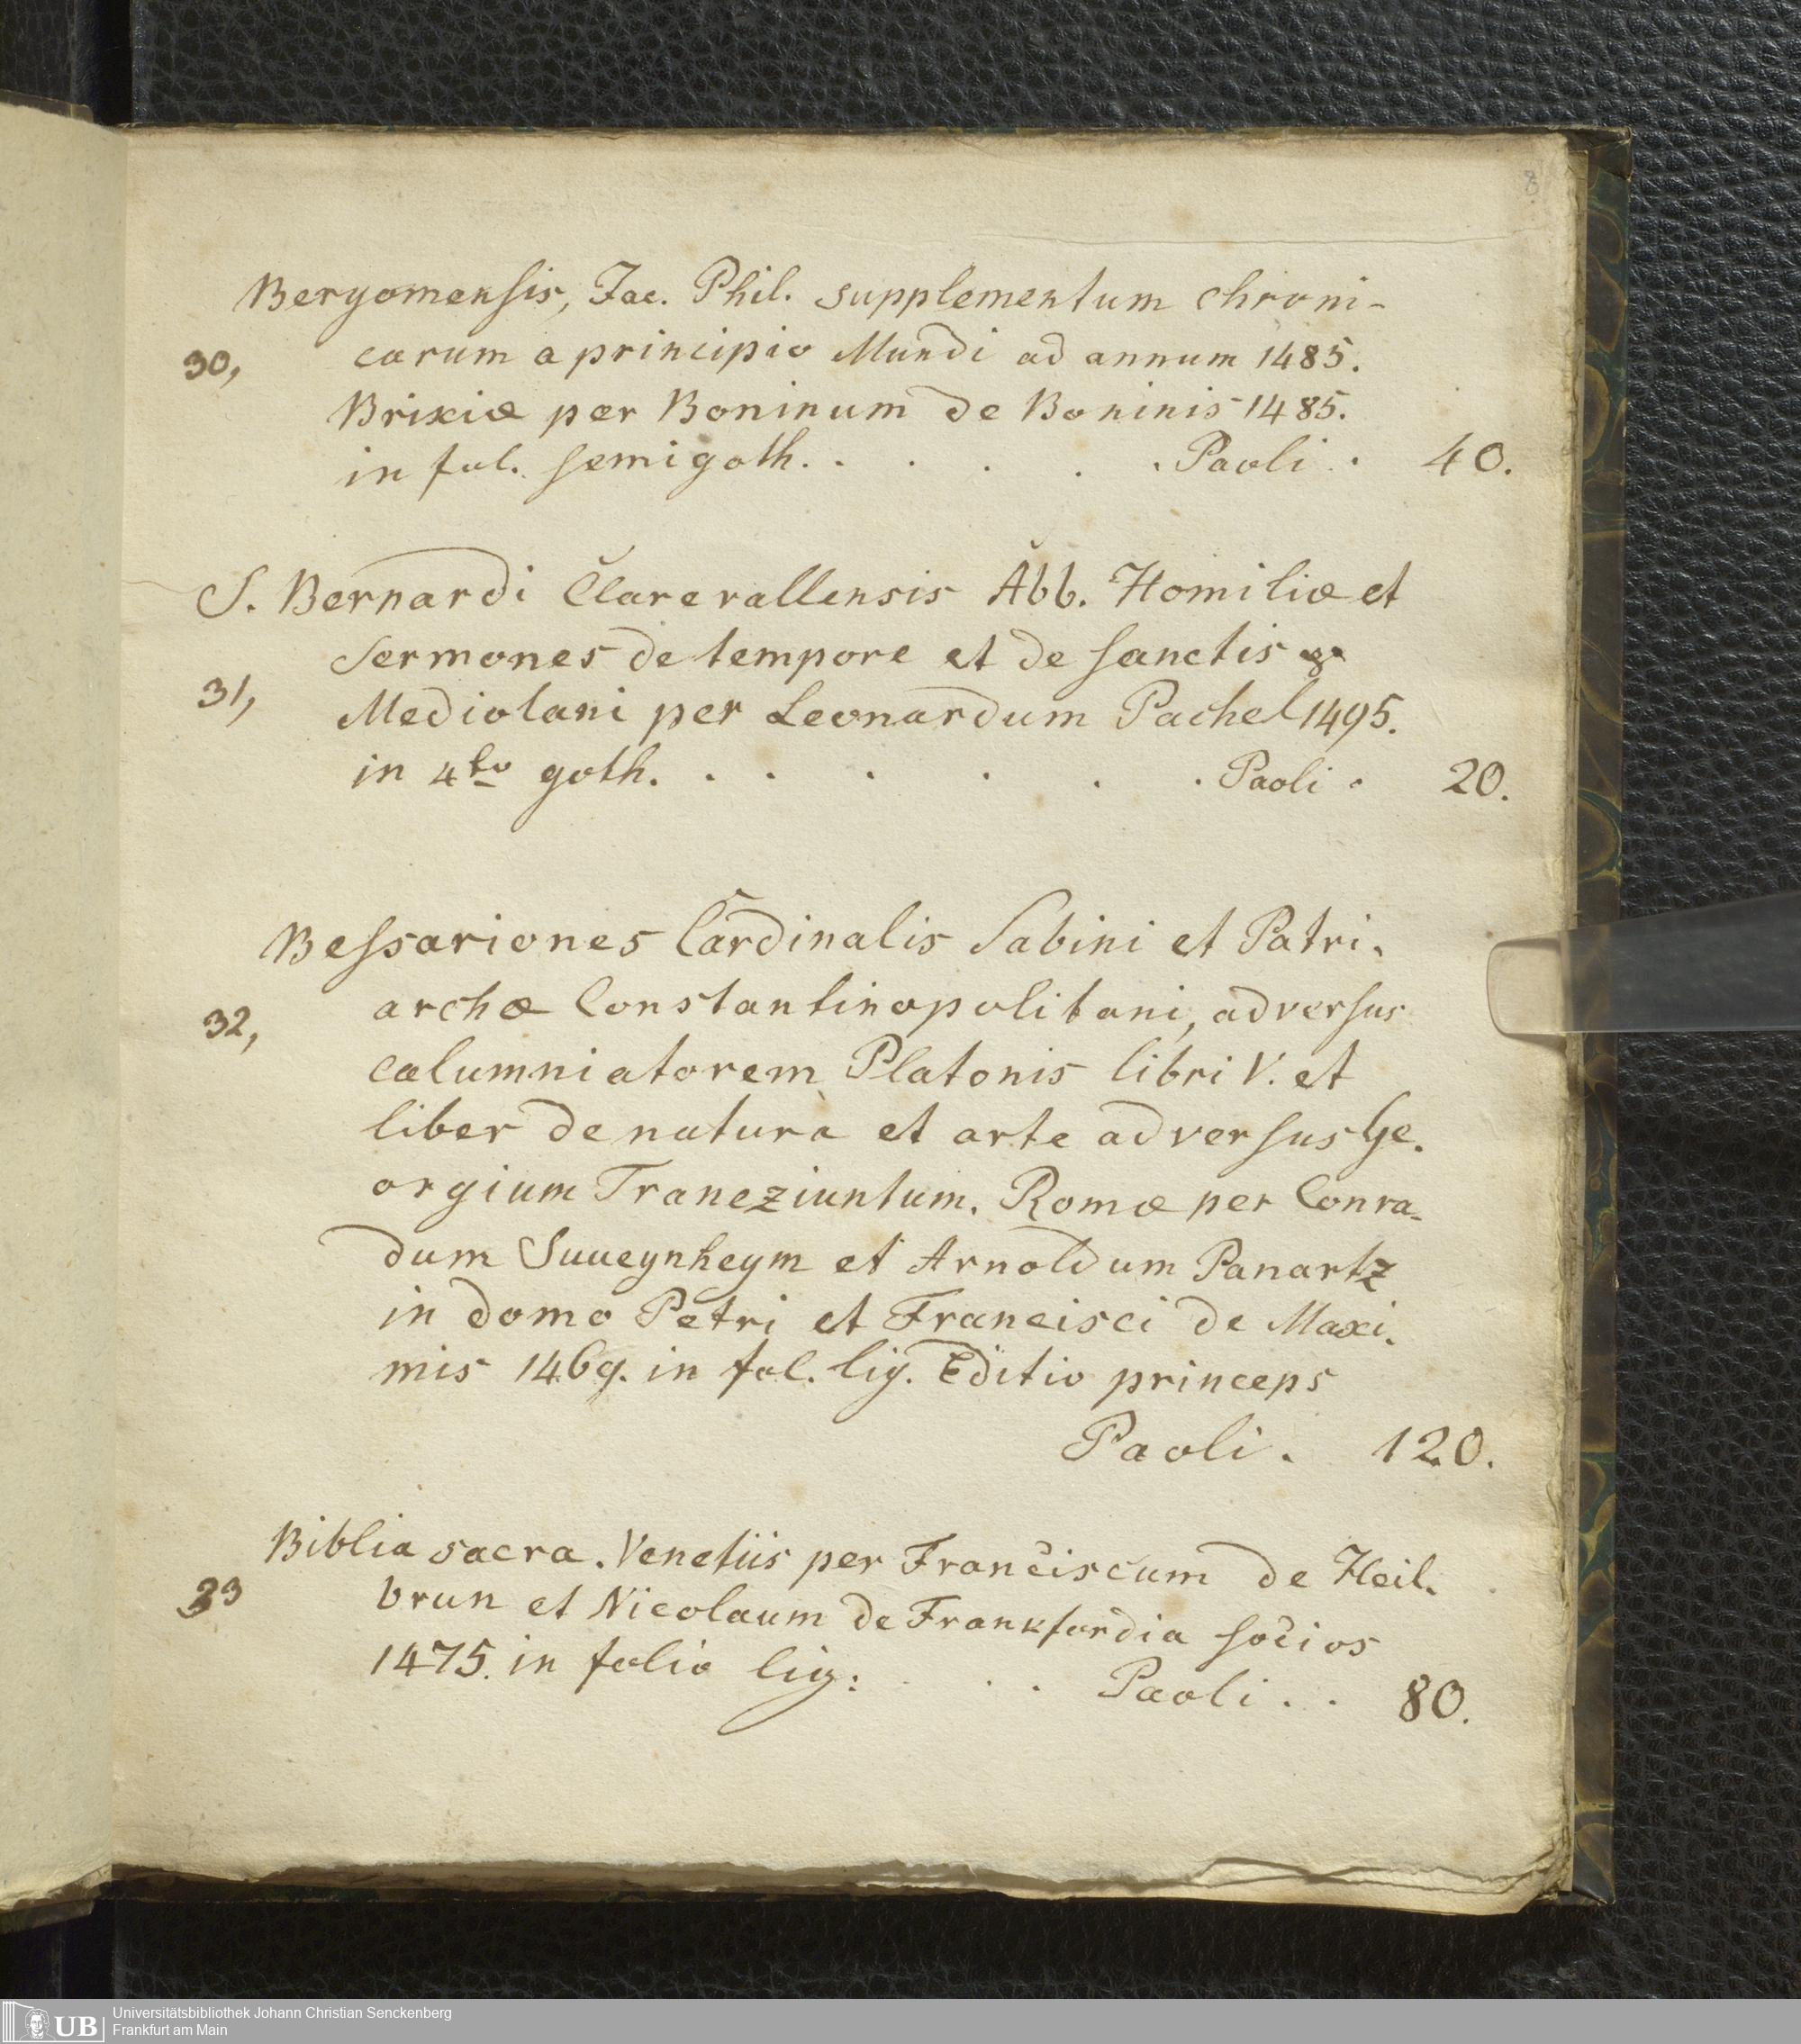 8
Bergomensis, Jac. Phil. supplementum chroni-
30, carum a principio Mundi ad annum 1485.
Brixiæ per Boninum de Boninis 1485.
in fol. semigoth. . . . . . Paoli . . 40.
S. Bernardi Clarevallensis Abb. Homiliæ et
Sermones de tempore et de sanctis
31, Mediolani per Leonardum Pachel 1495.
in 4to goth. . . . . . . Paoli . 20.
Bessariones Cardinalis Sabini et Patri.
32, archæ Constantinopolitani, adversus
calumniatorem Platonis libri V. et
liber de naturà et arte adversus Ge.
orgium Traneziuntum. Romæ per Conra-
dum Suueynheym et Arnoldum Panartz
in domo Petri et Francisci de Maxi.
mis 1469. in fol. lig. Editio princeps
Paoli. 120.
Biblia sacra. Venetiis per Franciscum de Heil.
33 brun et Nicolaum de Frankfordia socios
1475. in folio lig: . . . Paoli . . 80.
UB
Universitätsbibliothek Johann Christian Senckenberg
Frankfurt am Main